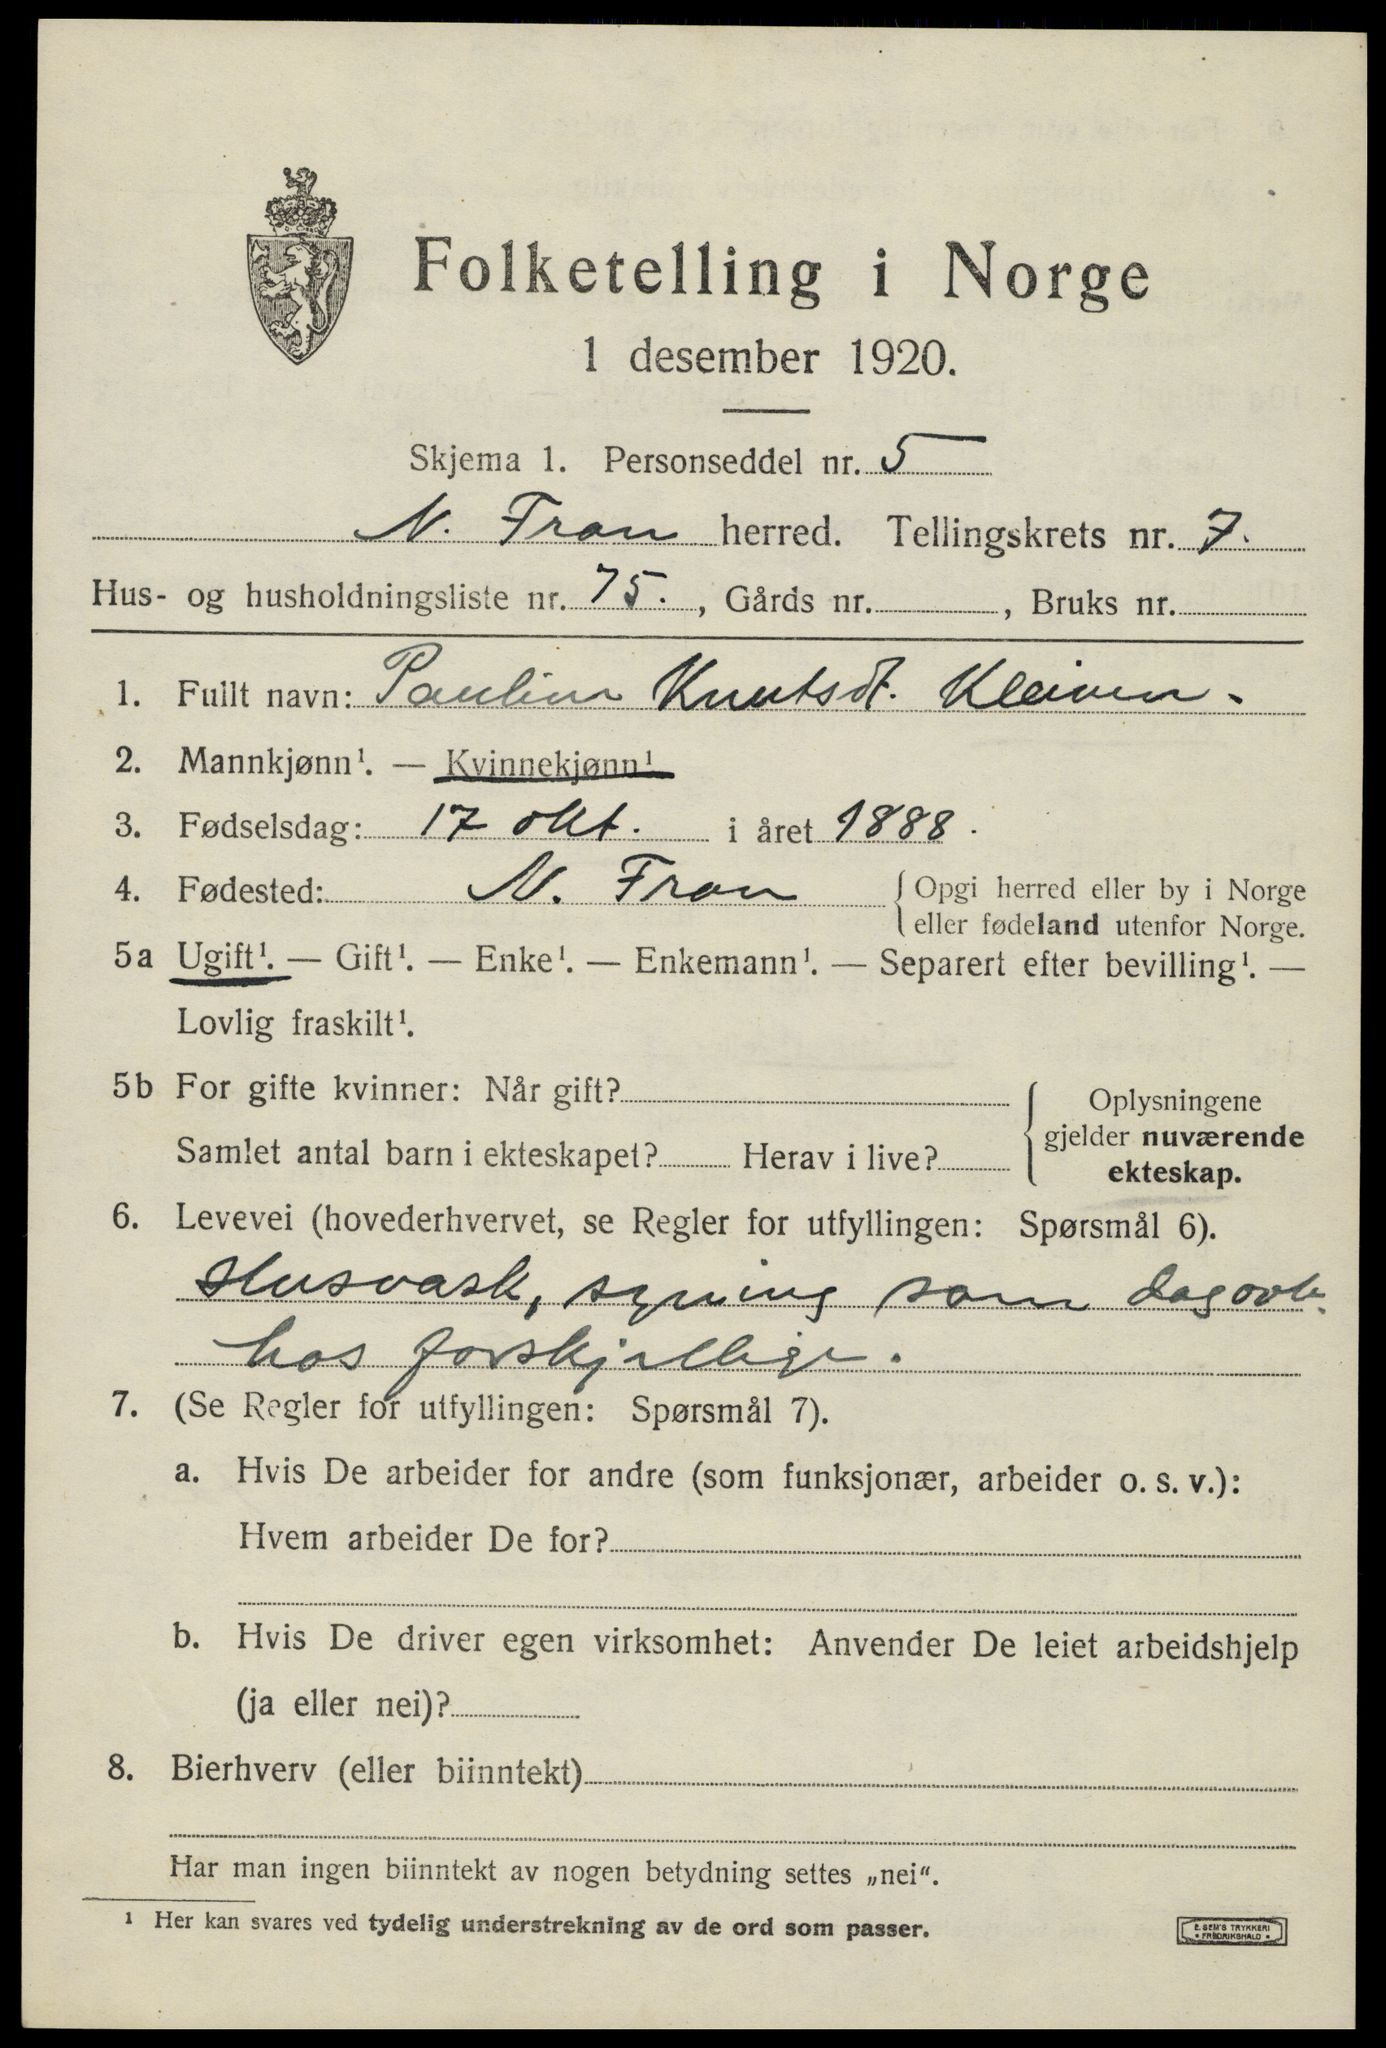 Folketelling i Norge
1 desember 1920.
Skjema 1. Personseddel nr. 5
N. Fron herred. Tellingskrets nr. 7.
Hus- og husholdningsliste nr. 75. , Gårds nr. , Bruks nr.
1. Fullt navn: Pauline Knutsdt. Kleiven.
2. Mannkjønn¹. — Kvinnekjønn¹
3. Fødselsdag: 17 okt. i året 1888.
4. Fødested: N. Fron { Opgi herred eller by i Norge
eller fødeland utenfor Norge.
5a Ugift¹. — Gift¹. — Enke¹. — Enkemann¹. — Separert efter bevilling¹. —
Lovlig fraskilt¹.
5b For gifte kvinner: Når gift? { Oplysningene
gjelder nuværende
Samlet antal barn i ekteskapet? Herav i live?
ekteskap.
6. Levevei (hovederhvervet, se Regler for utfyllingen: Spørsmål 6).
Husvask, syning som
hos forskjellige.
7. (Se Regler for utfyllingen: Spørsmål 7).
a. Hvis De arbeider for andre (som funksjonær, arbeider o. s. v.):
Hvem arbeider De for?
b. Hvis De driver egen virksomhet: Anvender De leiet arbeidshjelp
(ja eller nei)?
8. Bierhverv (eller biinntekt)
Har man ingen biinntekt av nogen betydning settes „nei".
¹ Her kan svares ved tydelig understrekning av de ord som passer.
E. SEM'S TRYKKERI
• FREDRIKSHALD •